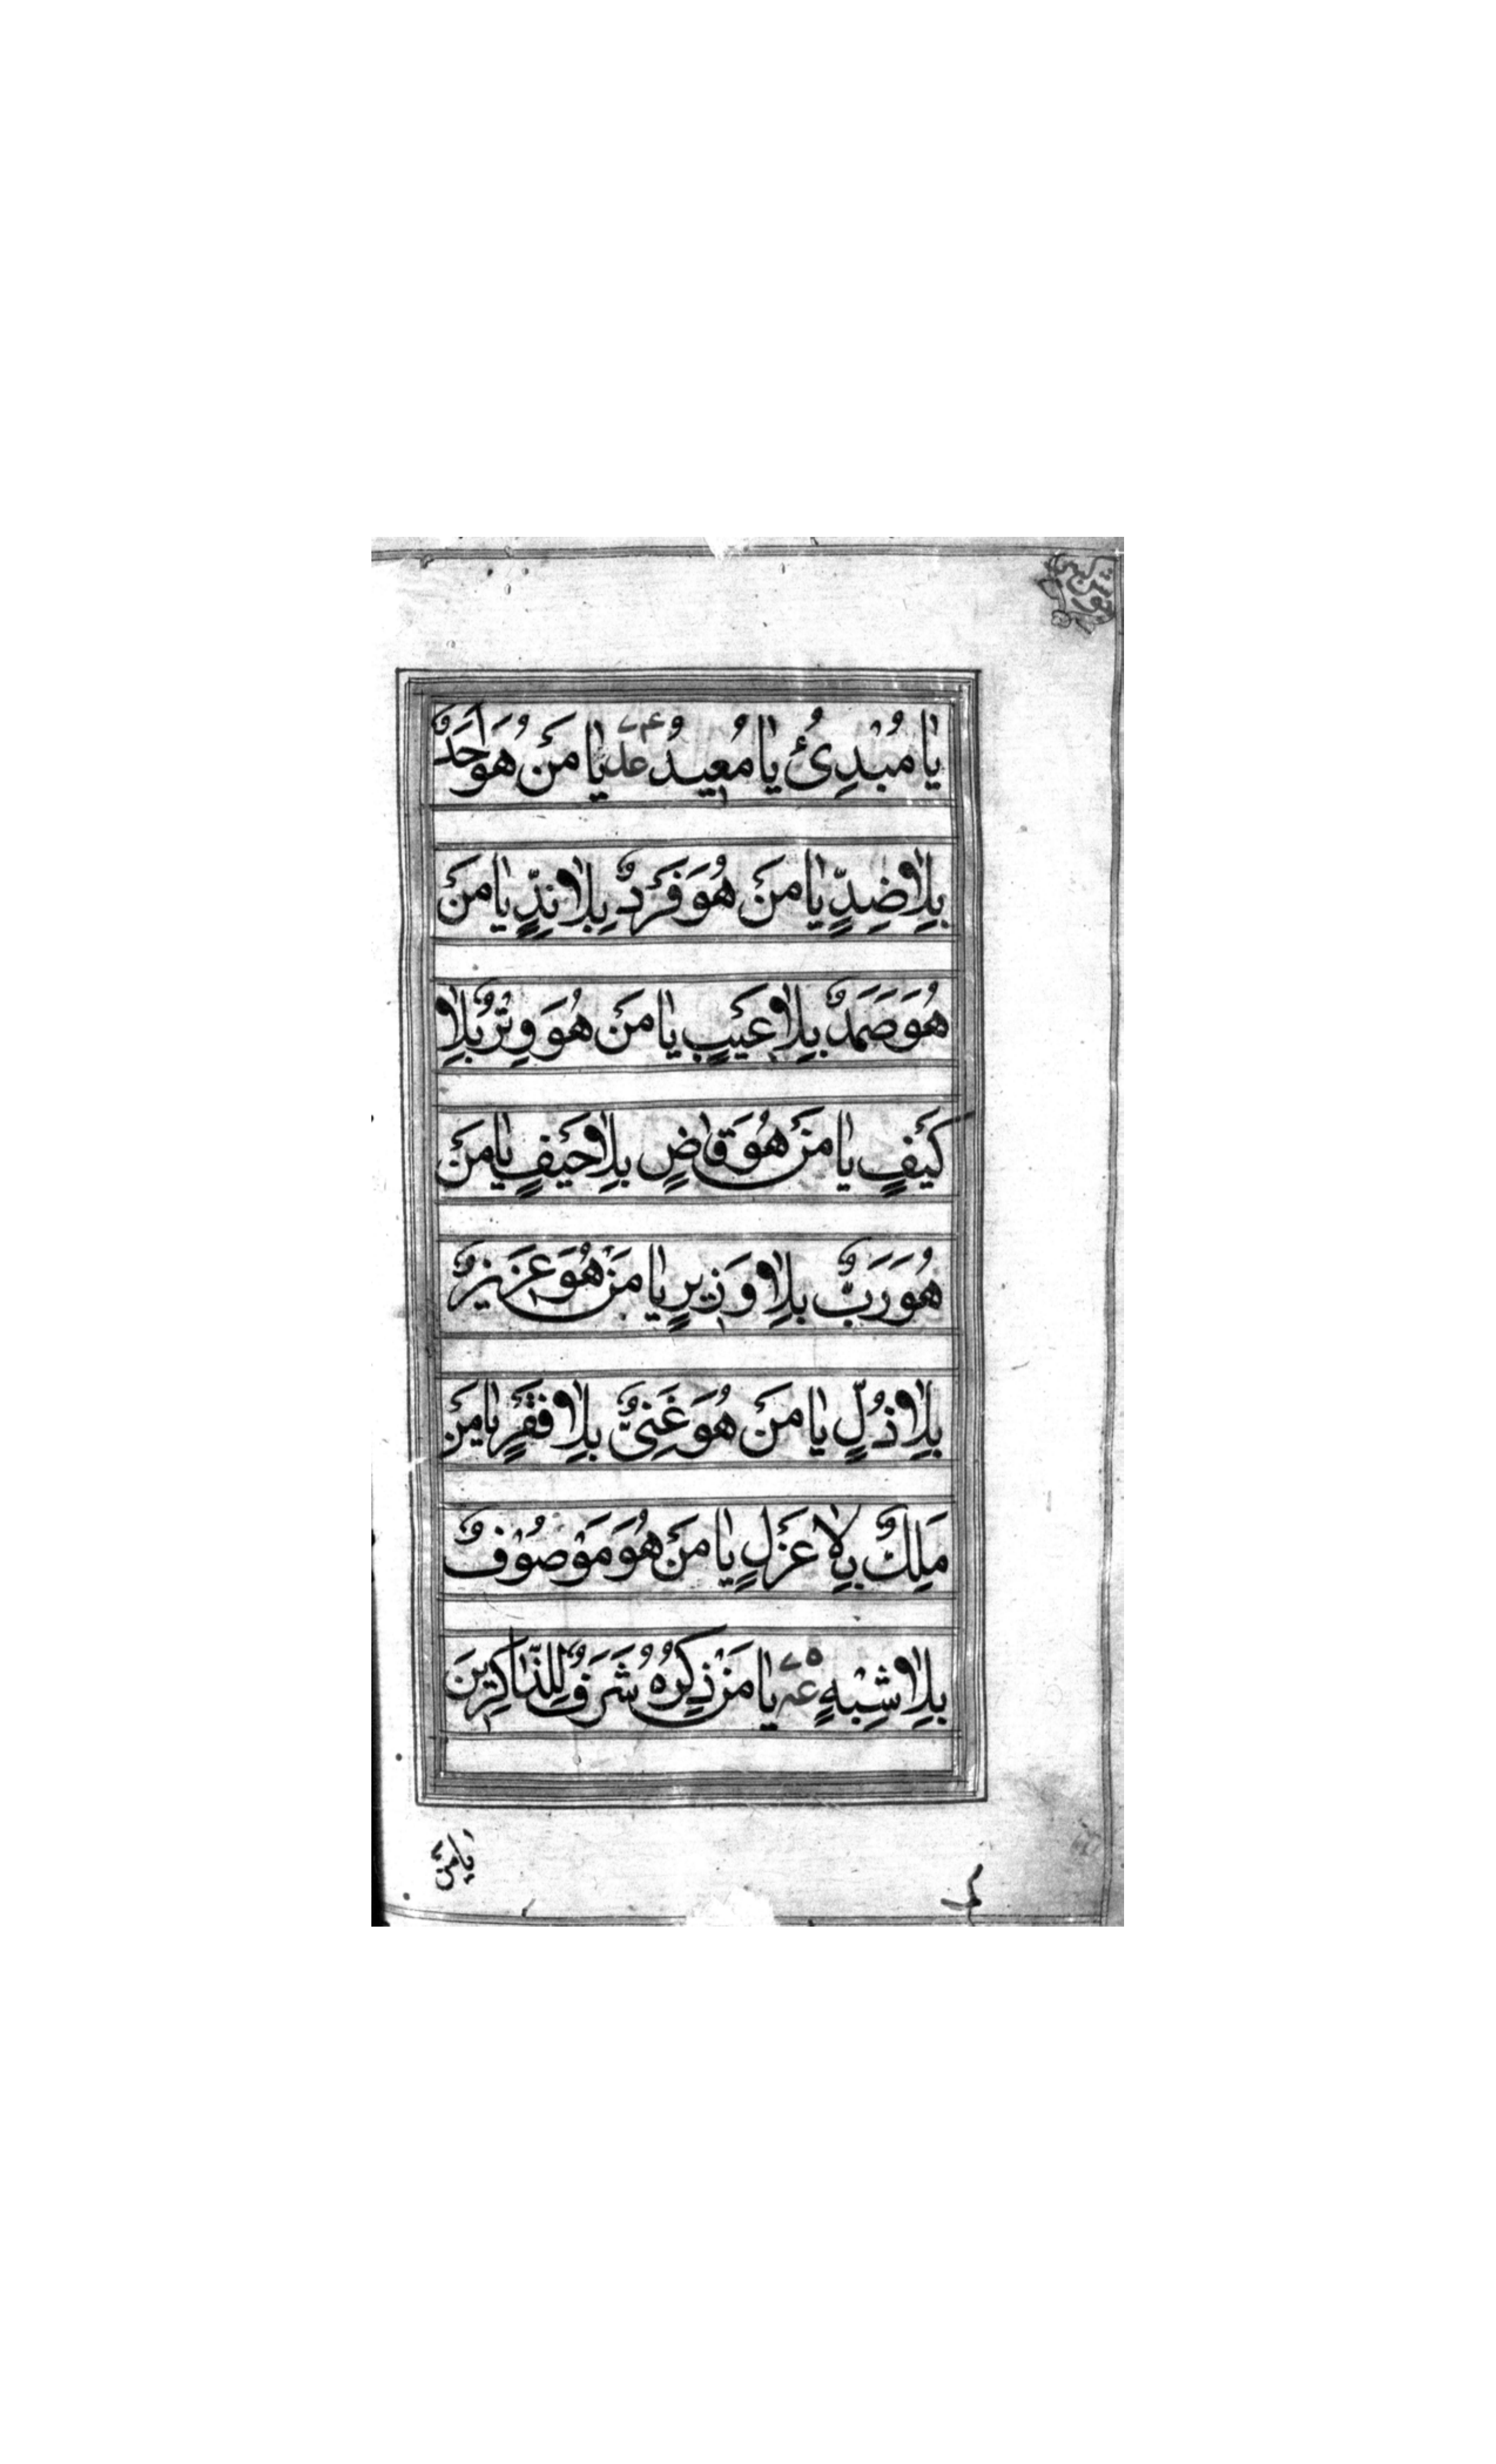 يٰا مُبْدِئُ يٰا مُعيدُ يٰا مَنْ هُوَ اَحَدٌ
بِلاٰ ضِدٍّ يٰا مَنْ هُوَ فَرْدٌ بِلاٰ نِدٍّ يٰا مَنْ
هُوَ صَمَدٌ بِلاٰ عَيْبٍ يٰا مَنْ هُوَ وِتْرٌ بِلاٰ
كَيْفٍ يٰا مَنْ هُوَ قٰاضٍ بِلاٰ حَيْفٍ يٰا مَنْ
هُوَ رَبٌّ بِلاٰ وَزيرٍ يٰا مَنْ هُوَ عَزيزٌ
بِلاٰ ذُلٍّ يٰا مَنْ هُوَ غَنِىٌّ بِلاٰ فَقْرٍ يٰا مَنْ
مَلِكٌ بِلاٰ عَزْلٍ يٰا مَنْ هُوَ مَوْصُوْفٌ
بِلاٰ شِبْهٍ يٰا مَنْ ذِكْرُهُ شَرَفٌ لِلذّٰاكِرينَ
يٰا مَنْ